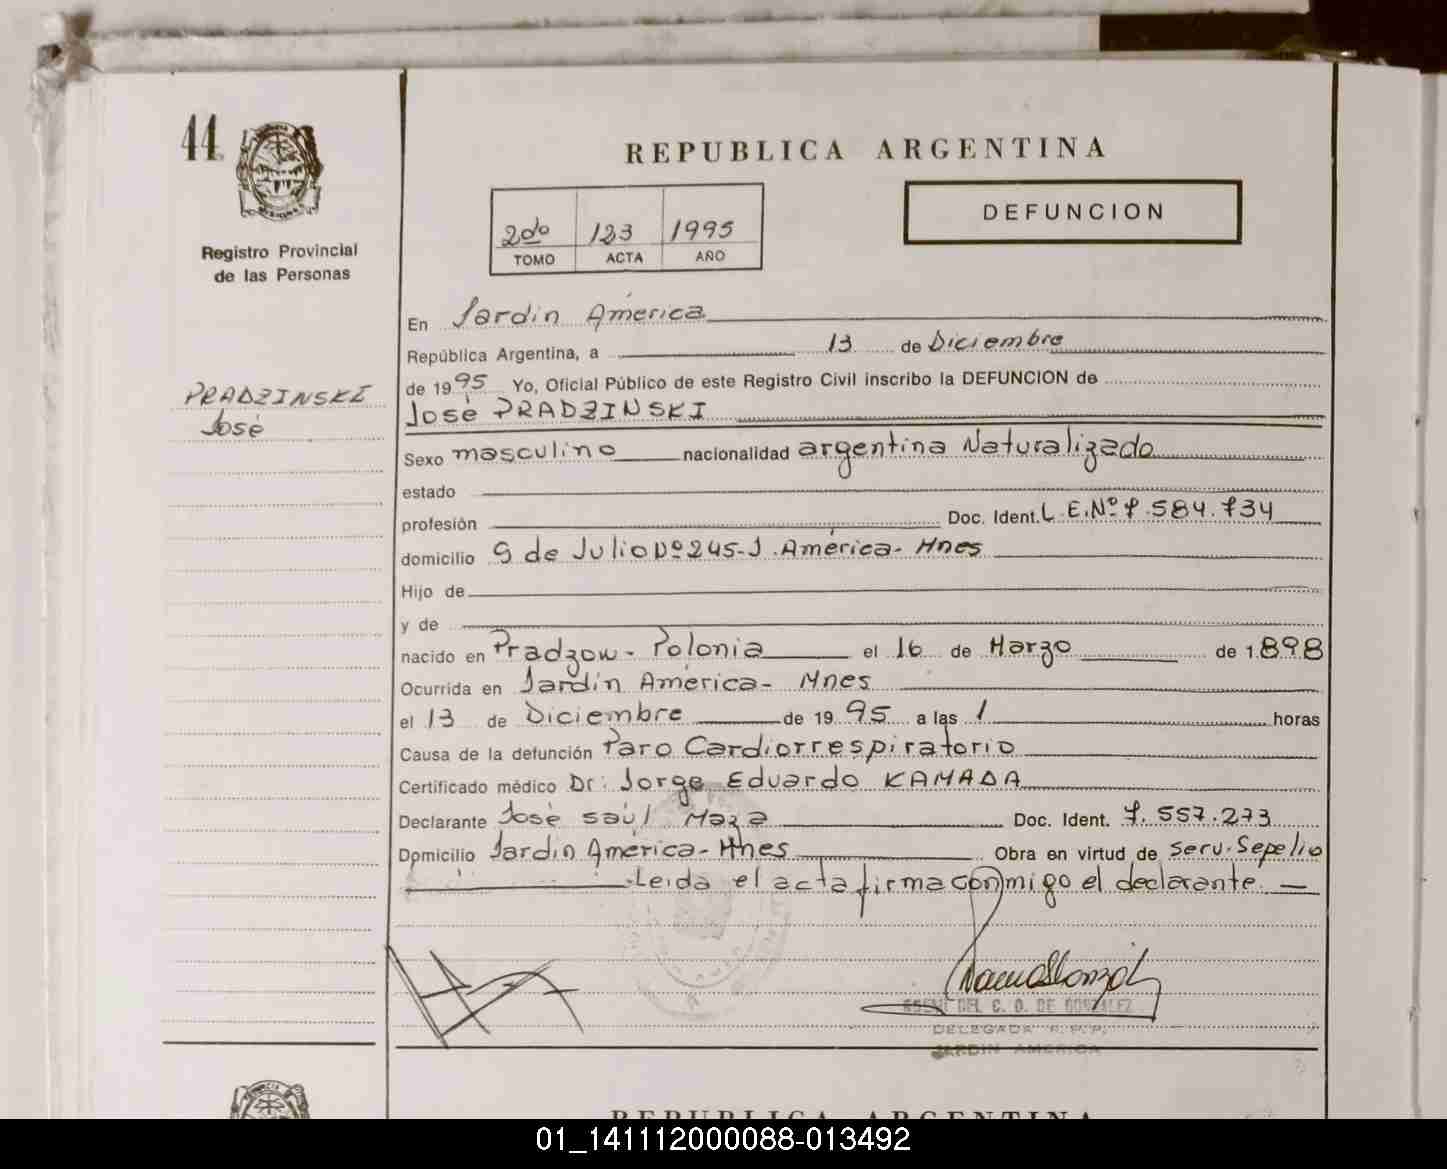 44
REPUBLICA ARGENTINA
DEFUNCION
2do 123 1995
TOMO ACTA AÑO
Registro Provincial
de las Personas
En Jardin América
República Argentina, a 13 de Diciembre
de 1995 Yo, Oficial Público de este Registro Civil inscribo la DEFUNCION de
PRADZINSKI
José
José PRADZINSKI
Sexo masculino nacionalidad argentina Naturalizado
estado
profesión Doc. Ident. L.E.Nº 7.584.734
domicilio 9 de Julio Nº 245-J. América- Mnes
Hijo de
y de
nacido en Pradzow- Polonia el 16 de Marzo de 1.898
Ocurrida en Jardín América- Mnes
el 13 de Diciembre de 1995 a las 1 horas
Causa de la defunción Paro Cardiorrespiratorio
Certificado médico Dr: Jorge Eduardo KAMADA
Declarante José saúl Maza Doc. Ident. 7.557.273
Domicilio Jardín América-Mnes Obra en virtud de Serv. Sepelio
Leida el acta firma conmigo el declarante.
DEL C. D. DE GONZALEZ
DELEGADA R.P.P.
JARDIN AMERICA
REPUBLICA ARGENTINA
01_141112000088-013492